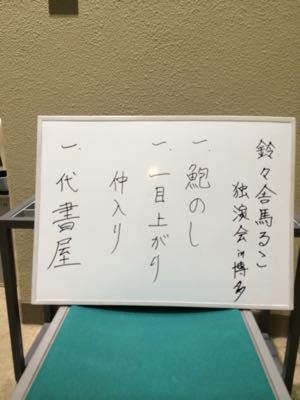 鈴々舎馬るこ
独演会in博多
一、鮑のし
一、一目上がり
仲入り
一、代書屋